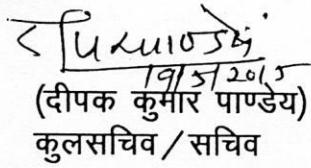 19/5/2015
(दीपक कुमार पाण्डेय)
कुलसचिव / सचिव